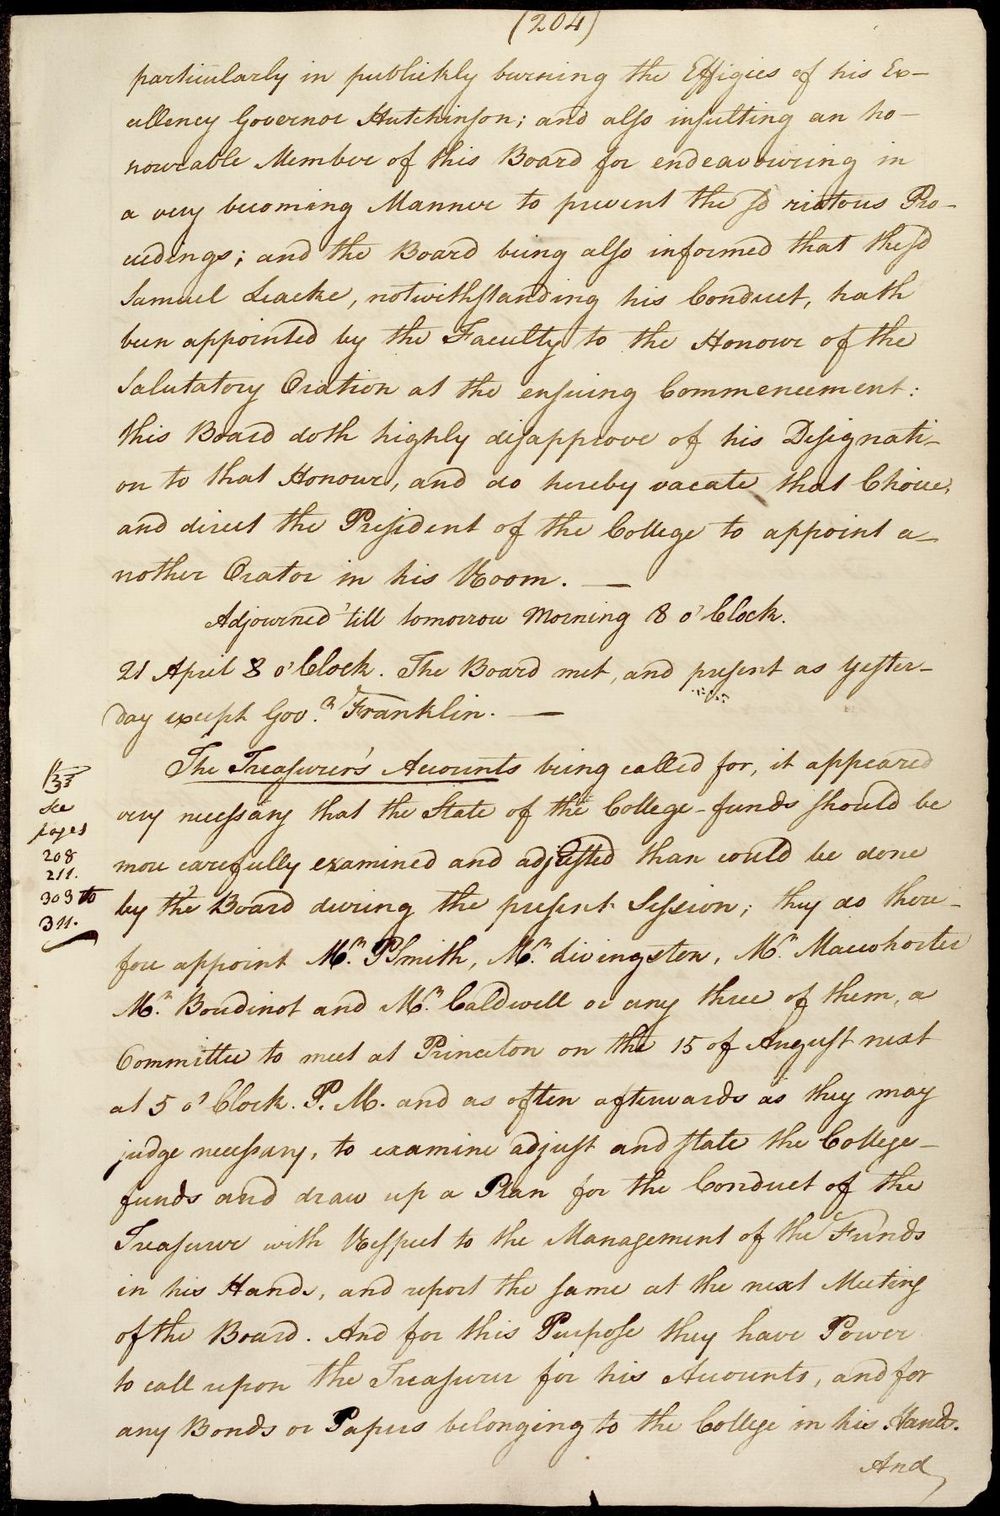 (204)
particularly in publickly burning the Effigies of his Ex-
cellency Governor Hutchinson; and also insulting an ho-
nourable Member of this Board for endeavouring in
a very becoming Manner to prevent the sd riotous Pro-
ceedings; and the Board being also informed that the sd
Samuel Leacke, notwithstanding his Conduct, hath
been appointed by the Faculty to the Honour of the
Salutatory Oration at the ensuing Commencement:
this Board doth highly disapprove of his Designati-
on to that Honour, and do hereby vacate that Choice,
and direct the President of the College to appoint a-
nother Orator in his Room. —
Adjourned 'till tomorrow Morning 8 o'Clock.
21 April 8 o'Clock. The Board met, and present as yester-
day except Gov.r Franklin. —
The Treasurer's Accounts being called for, it appeared
very necessary that the State of the College-funds should be
more carefully examined and adjusted than could be done
by the Board during the present Session; they do there-
fore appoint Mr. PSmith, Mr. Livingston, Mr. Macwhorter
Mr. Boudinot and Mr. Caldwell or any three of them, a
Committee to meet at Princeton on the 15 of August next
at 5 o'Clock. P. M. and as often afterwards as they may
judge necessary, to examine adjust and state the College-
funds and draw up a Plan for the Conduct of the
Treasurer with Respect to the Management of the Funds
in his Hands, and report the same at the next Meeting
of the Board. And for this Purpose they have Power
to call upon the Treasurer for his Accounts, and for
any Bonds or Papers belonging to the College in his Hands.
And
see
pages
208
211.
303 to
311.